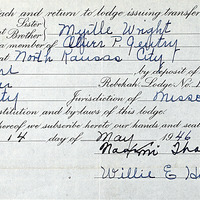 ach and return to lodge issuing transfer
Sister Myrtle Wright
Brother
a member of Alfers P. Gentry
at North Kansas City
by deposit of
Rebekah Lodge No. 1
ty Jurisdiction of Misso
stitution and by-laws of this lodge.
hereof we subscribe hereto our hands and sea
14 day of May 1946
Naomi Tho
Willie E. H